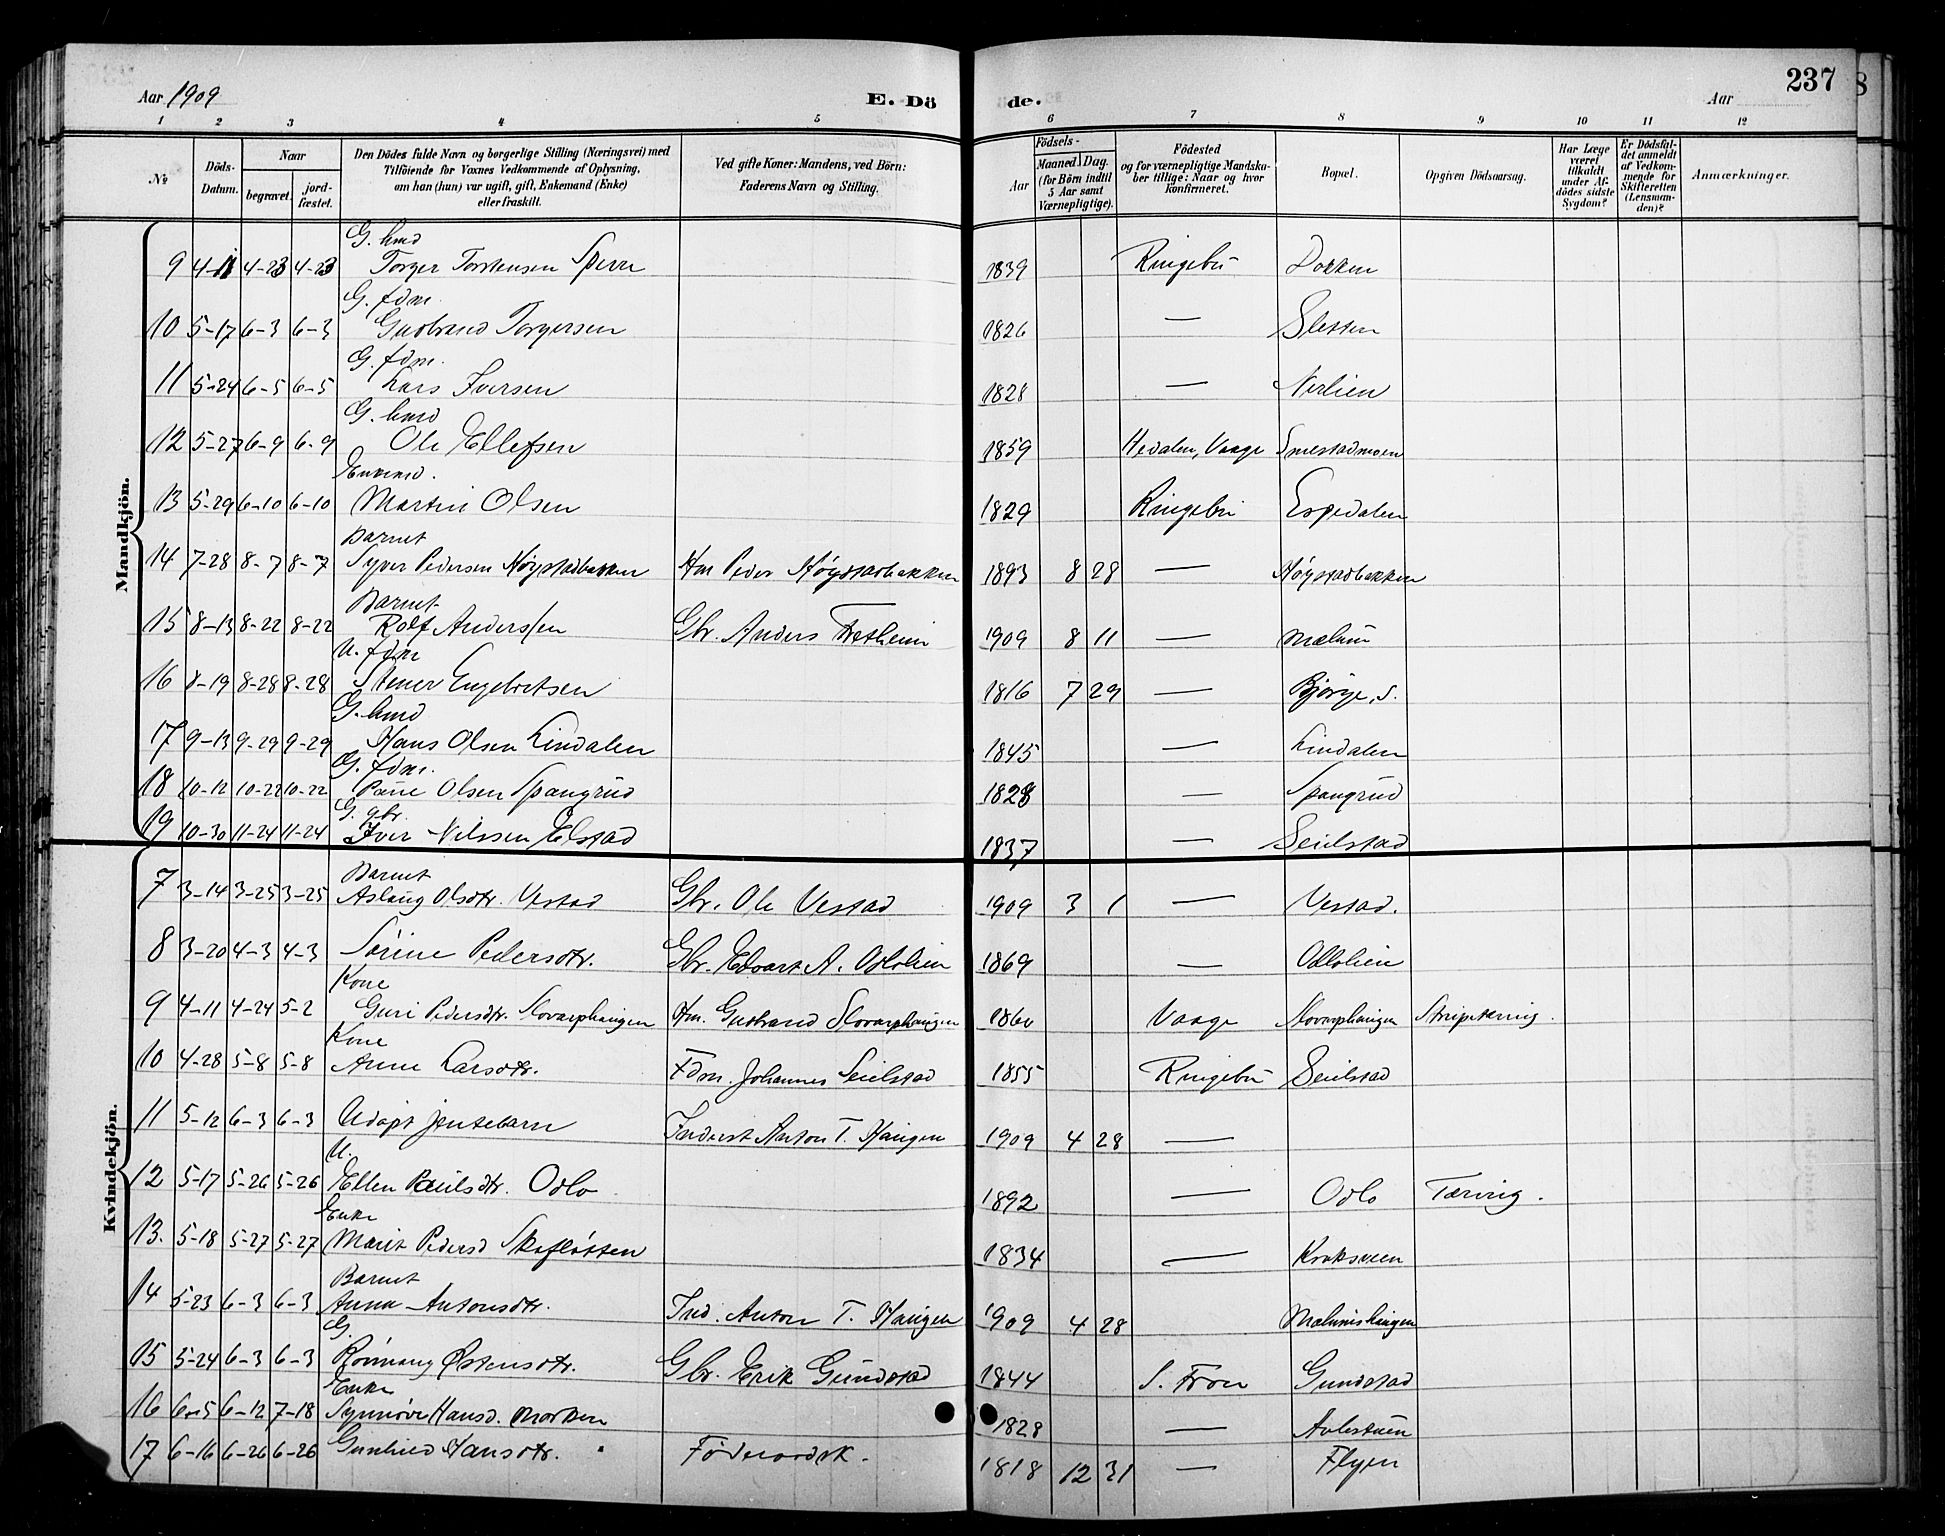 Aar 1909
E. Dö
de.
Aar
237
1 2 3 4 5 6 7 8 9 10 11 12
№
Döds-Datum.
Naar
begravet.
jord-fæstet.
Den Dödes fulde Navn og borgerlige Stilling (Næringsvei) med Tilföiende for Voxnes Vedkommende af Oplysning, om han (hun) var ugift, gift, Enkemand (Enke) eller fraskilt.
Ved gifte Koner: Mandens, ved Börn: Faderens Navn og Stilling.
Födsels-
Aar
Maaned. Dag.
(for Börn indtil 5 Aar samt Værnepligtige).
Födested og for værnepligtige Mandskaber tillige: Naar og hvor Konfirmeret.
Bopæl.
Opgiven Dödsaarsag.
Har Læge været tilkaldt under Afdödes sidste Sygdom?
Er Dödsfaldet anmeldt af Vedkommende for Skifteretten (Lensmanden)?
Anmærkninger.
Mandkjön.
G. hmd
9 4-11 4-23 4-23 Torger Torstensen 1839 Ringebu Dokken
G. fdm.
10 5-17 6-3 6-3 Gudbrand Torgersen 1826 — Sletten
G. fdm.
11 5-24 6-5 6-5 Lars Iversen 1828 — Nerlien
G. hmd
12 5-27 6-9 6-9 Ole Ellefsen 1859 Hedalen, Vaage Smestadmoen
Enkemd.
13 5-29 6-10 6-10 Martin Olsen 1829 Ringebu Espedalen
Barnet
14 7-28 8-7 8-7 Syver Pedersen Høystadbakken Hm Peder Høystadbakken 1893 8 28 — Høystadbakken
Barnet
15 8-13 8-22 8-22 Rolf Anderssen Gbr. Anders Fretheim 1909 8 11 — Mælum
U. fdm
16 8-19 8-28 8-28 Stener Engebretsen 1816 7 29 — Bjørge, s.
G. hmd
17 9-13 9-29 9-29 Hans Olsen Lindalen 1845 — Lindalen
G. fdm.
18 10-12 10-22 10-22 Olsen Spangrud 1828 — Spangrud
G. gbr.
19 10-30 11-24 11-24 Iver Nilssen Elstad 1837 — Seielstad
Kvindekjön.
Barnet
7 3-14 3-25 3-25 Aslaug Olsdtr. Vestad Gbr. Ole Vestad 1909 3 1 — Vestad.
8 3-20 4-3 4-3 Sørine Pedersdtr. Gbr. Edvart A. Odlolien 1869 — Odlolien
Kone
9 4-11 4-24 5-2 Guri Pedersdtr. Slovarphaugen Hm. Gudbrand Slovarphaugen 1860 Vaage Slovarphaugen
Kone
10 4-28 5-8 5-8 Anne Larsdtr. Fdm. Johannes Seielstad 1855 Ringebu Seielstad
11 5-12 6-3 6-3 Udøpt jentebarn Inderst Anton T. Haugen 1909 4 28 —
U.
12 5-17 5-26 5-26 Ellen Paulsdtr. Odlo 1892 — Odlo Tæring.
Enke
13. 5-18 5-27 5-27 Marit Pedersd Skafløtten 1834 — Kroksveen
Barnet
14 5-23 6-3 6-3 Anna Antonsdtr. Ind. Anton T. Haugen 1909 4 28 Mælumshaugen
G.
15 5-24 6-3 6-3 Rønnaug Østensdtr. Gbr. Erik Gundstad 1844 S. Fron Gundstad
Enke
16 6-5 6-12 7-18 Synnøve Hansd. Morken 1828 — Aulestuen
17 6-16 6-26 6-26 Gunhild Hansdtr. Føderaadsk. 1818 12 31 — Flyen